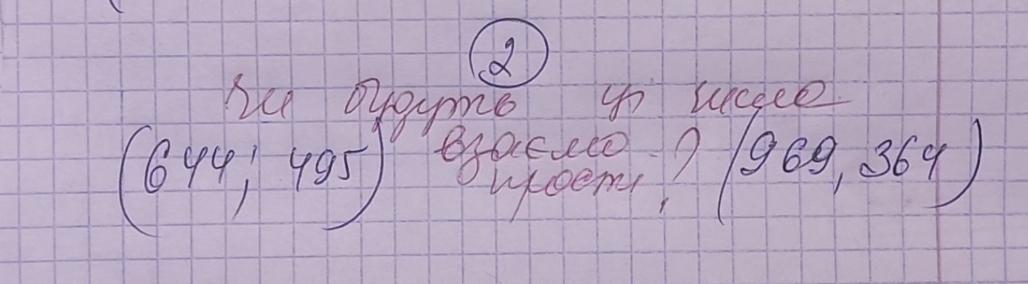 2
Чи будуть ці числа
(644; 495) взаємо прості? (969, 364)